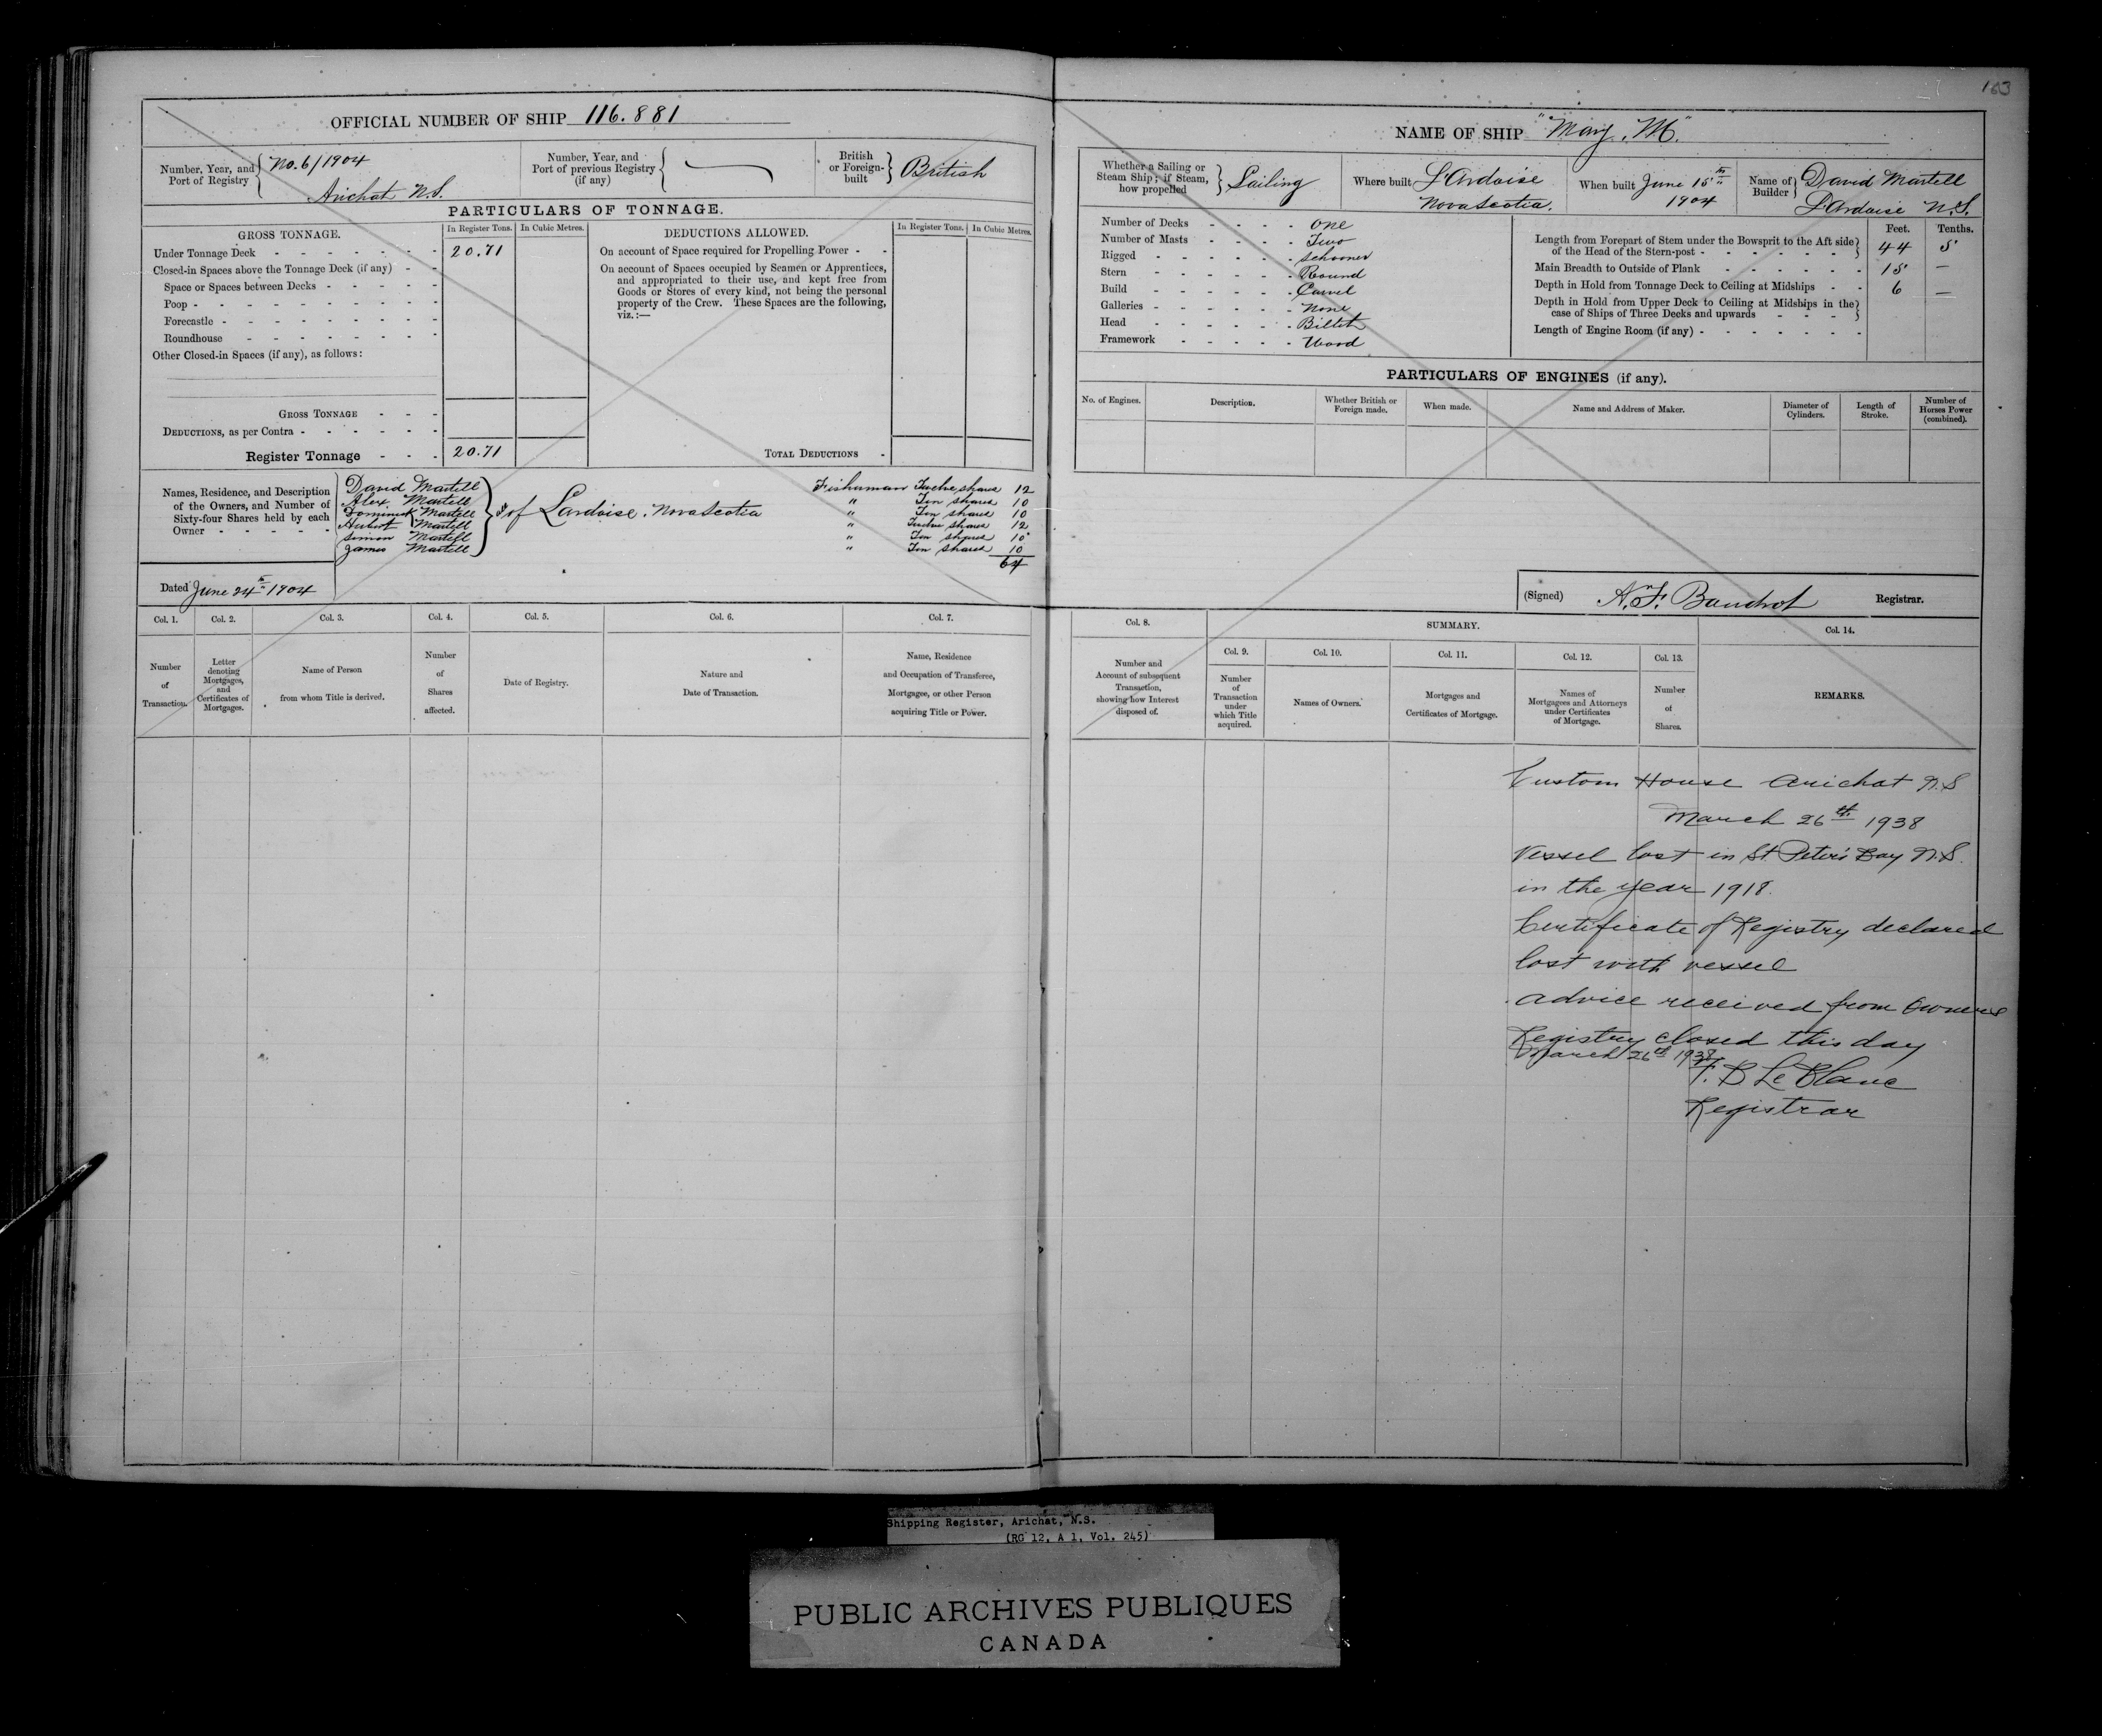 163
OFFICIAL NUMBER OF SHIP 116.881
Number, Year, and Port of Registry No. 6/1904
Arichat N.S.
Number, Year, and Port of previous Registry (if any)
British or Foreign-built British
PARTICULARS OF TONNAGE.
GROSS TONNAGE.
In Register Tons. In Cubic Metres.
Under Tonnage Deck 20.71
Closed-in Spaces above the Tonnage Deck (if any)
Space or Spaces between Decks
Poop
Forecastle
Roundhouse
Other Closed-in Spaces (if any), as follows:
GROSS TONNAGE
DEDUCTIONS, as per Contra
Register Tonnage 20.71
DEDUCTIONS ALLOWED.
In Register Tons. In Cubic Metres.
On account of Space required for Propelling Power
On account of Spaces occupied by Seamen or Apprentices,
and appropriated to their use, and kept free from
Goods or Stores of every kind, not being the personal
property of the Crew. These Spaces are the following,
viz.:—
TOTAL DEDUCTIONS
Names, Residence, and Description
of the Owners, and Number of
Sixty-four Shares held by each
Owner
David Martell
Alex Martell
Dominick Martell
Hubert Martell
Simon Martell
James Martell
of Lardoise. Nova Scotia
Fishuman Twelve shares 12
" Ten shares 10
" Ten shares 10
" Twelve shares 12
" Ten shares 10
" Ten shares 10
64
Dated June 24th 1904
Col. 1. Col. 2. Col. 3. Col. 4. Col. 5. Col. 6. Col. 7.
Number of Transaction.
Letter denoting Mortgages, and Certificates of Mortgages.
Name of Person from whom Title is derived.
Number of Shares affected.
Date of Registry.
Nature and Date of Transaction.
Name, Residence and Occupation of Transferee, Mortgagee, or other Person acquiring Title or Power.
NAME OF SHIP "Mary. M."
Whether a Sailing or Steam Ship; if Steam, how propelled Sailing
Where built L'Ardoise
Nova Scotia.
When built June 15th
1904
Name of Builder David Martell
L'Ardoise N.S.
Number of Decks One
Number of Masts Two
Rigged Schooner
Stern Round
Build Carvel
Galleries None
Head Billet
Framework Wood
Feet. Tenths.
Length from Forepart of Stem under the Bowsprit to the Aft side
of the Head of the Stern-post 44 5
Main Breadth to Outside of Plank 15 —
Depth in Hold from Tonnage Deck to Ceiling at Midships 6 —
Depth in Hold from Upper Deck to Ceiling at Midships in the
case of Ships of Three Decks and upwards
Length of Engine Room (if any)
PARTICULARS OF ENGINES (if any).
No. of Engines.
Description.
Whether British or Foreign made.
When made.
Name and Address of Maker.
Diameter of Cylinders.
Length of Stroke.
Number of Horses Power (combined).
(Signed) A. F. Registrar.
Col. 8. SUMMARY. Col. 14.
Col. 9. Col. 10. Col. 11. Col. 12. Col. 13.
Number and Account of subsequent Transaction, showing how Interest disposed of.
Number of Transaction under which Title acquired.
Names of Owners.
Mortgages and Certificates of Mortgage.
Names of Mortgagees and Attorneys under Certificates of Mortgage.
Number of Shares.
REMARKS.
Custom House Arichat N.S
March 26th 1938
Vessel lost in St Peter's Bay N.S.
in the year 1918.
Certificate of Registry declared
lost with vessel
advice received from Owners
Registry closed this day
March 26th 1938
F. B LeBlanc
Registrar
Shipping Register, Arichat, N.S.
(RG 12, A 1, Vol. 245)
PUBLIC ARCHIVES PUBLIQUES
CANADA